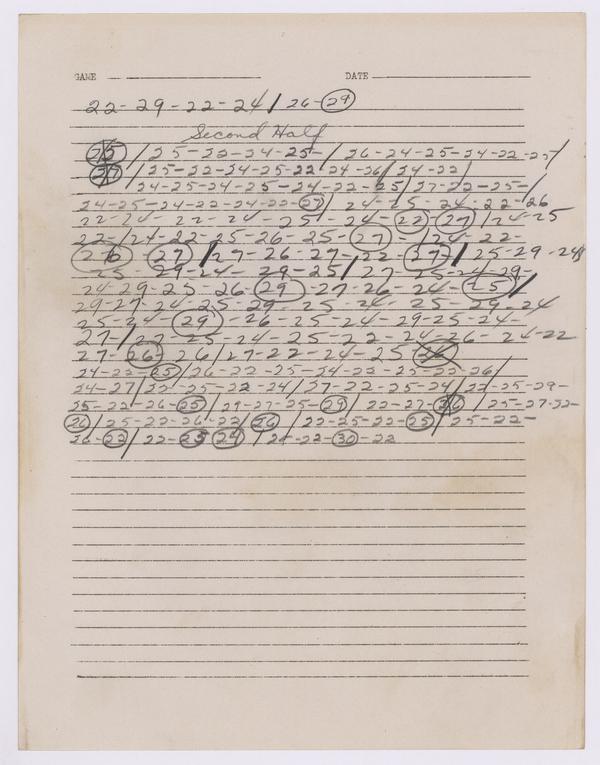 GAME DATE
22-29-22-24/26-29
Second Half
25/25-22-24-25-/26-24-25-24-22-25/
27/25-22-24-25-22-24-26/24-22/
/24-25-24-25-24-22-25/27-22-25-/
24-25-24-22-24-22-27/24-25-24-22-26
22-24-22-24-25-24-22-27/24-25
22-/24-22-25-26-25-27-/24-22-
26-27/27-26-27-22-27-/25-29-24/
25-29-24-29-25/27-25-24-29-
24-29-25-26-29-27-26-24-25/
29-27-24-25-29-25-24-25-29-24
25-24-29-26-25-24-29-25-24-
27/22-25-24-25-22-24-26-24-22
27-26/26/27-22-24-25
24-22-25/26-22-25-24-22-25-22-26/
24-27/22-25-22-24/27-22-25-24/22-25-29-
25-22-26-25/29-27-25-29/22-27-26/25-27-22-
26/25-22-26-22/26/22-25-22-25/25-22-
26-22/22-25 29/24-22-30-22